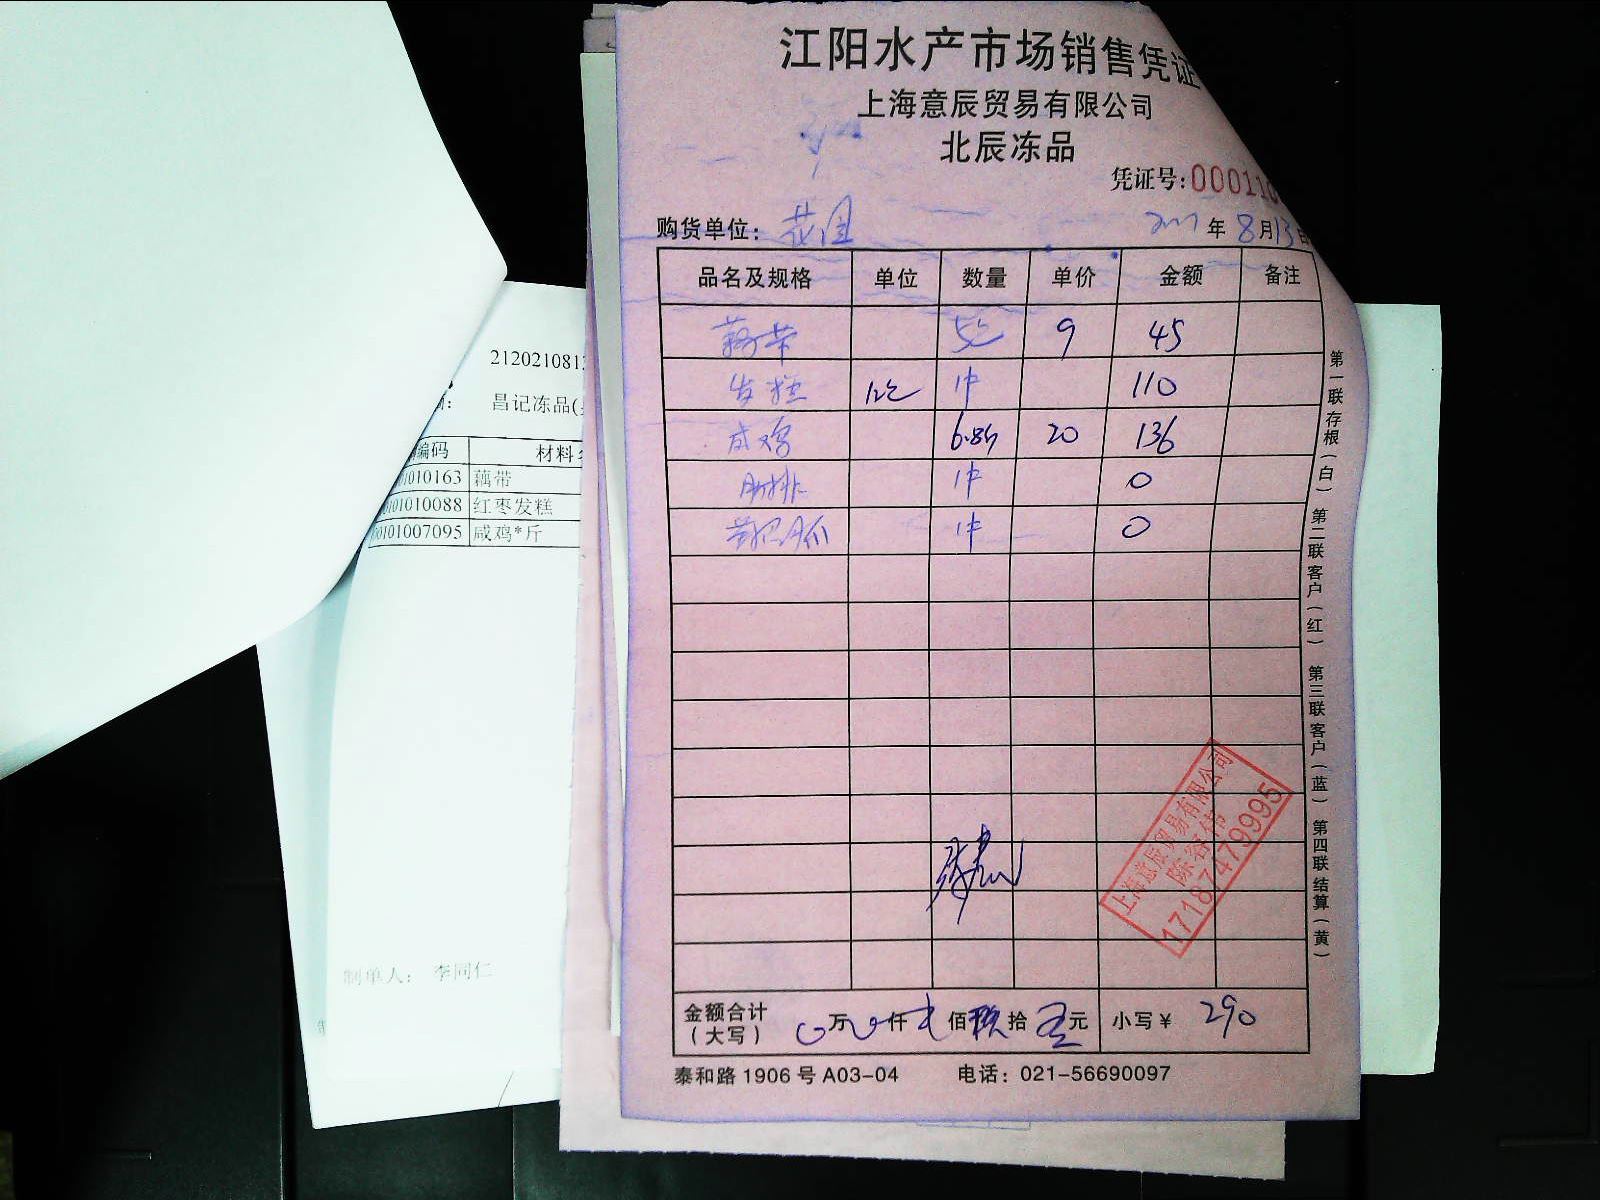 江阳水产市场销售凭证
上海意辰贸易有限公司
北辰冻品
凭证号:000110
购货单位: 花园 年 8月13日
品名及规格 单位 数量 单价 金额 备注
藕带 9 45
发糕 1件 110
咸鸡 6.8斤 20 136
肋排 1件 0
1件 0
金额合计(大写) 0万0仟贰佰玖拾元 小写¥ 290
泰和路1906号A03-04 电话: 021-56690097
第一联存根(白) 第二联客户(红) 第三联客户(蓝) 第四联结算(黄)
上海意辰贸易有限公司
17187479995
2120210813
昌记冻品(
编码 材料
010163 藕带
0101010088 红枣发糕
0101007095 咸鸡*斤
制单人: 李同仁